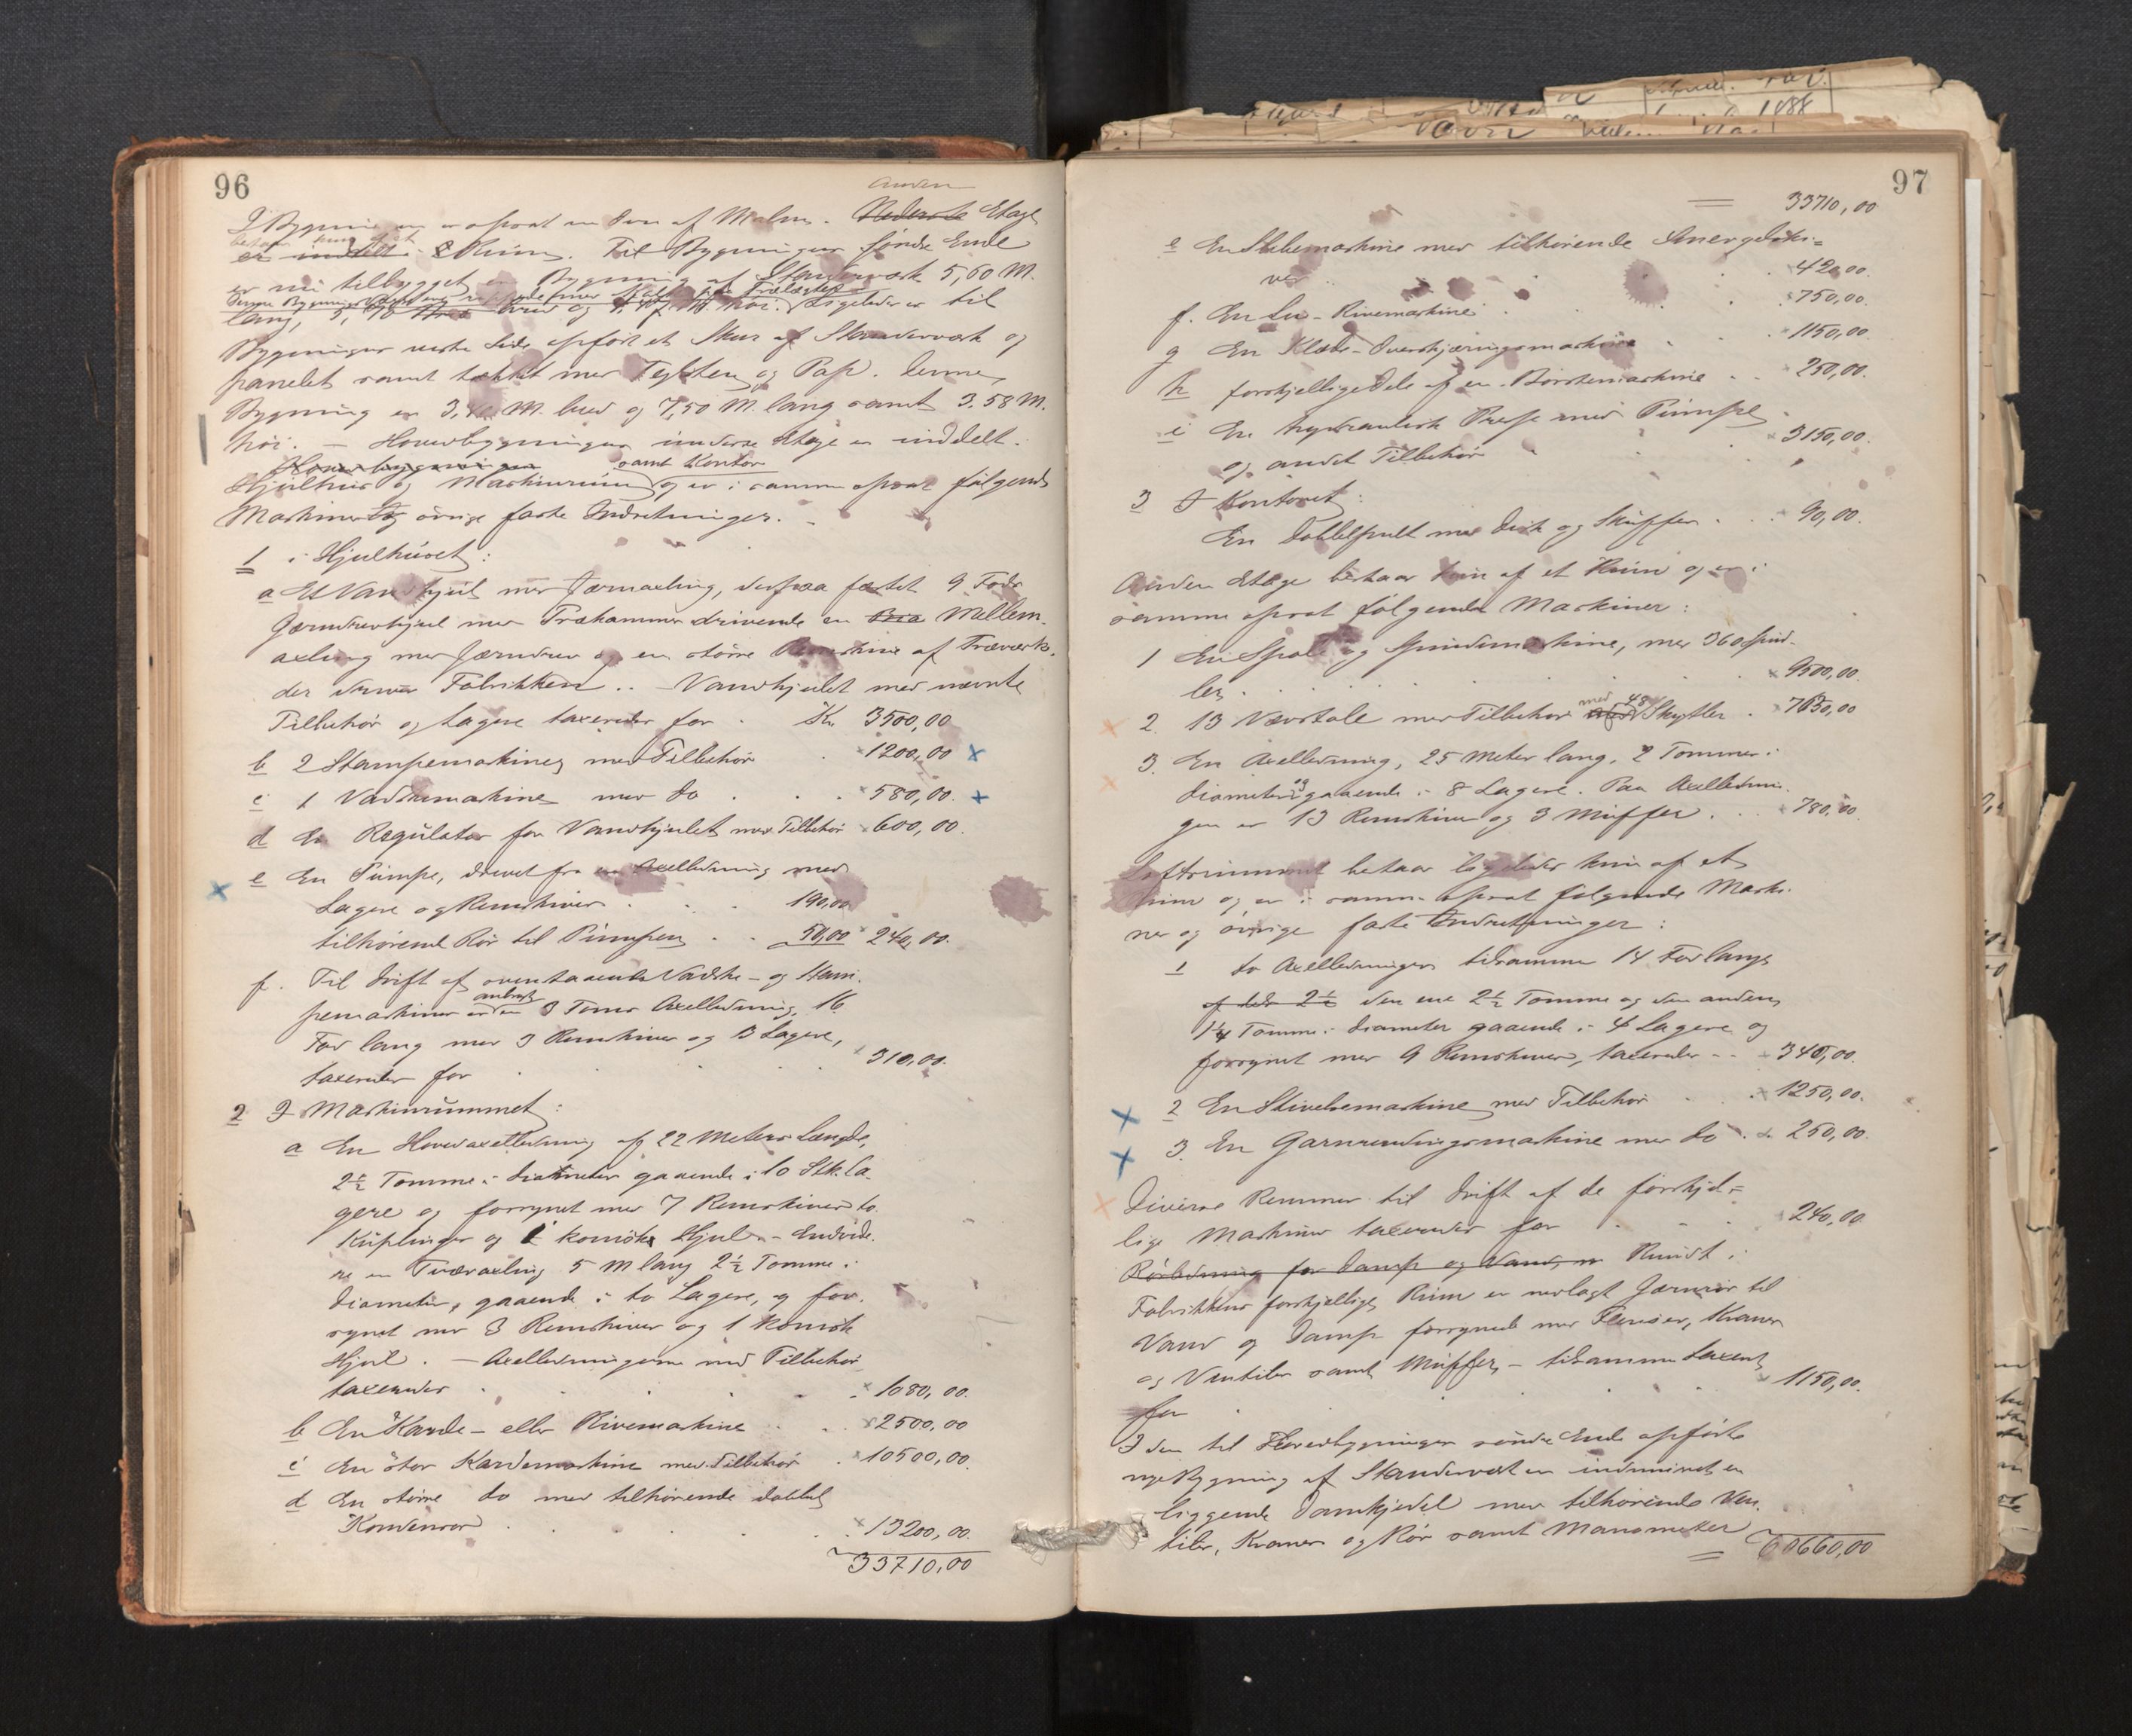 96
Anden
I Bygningen er opsat en Ovn af Malm. Nederste Etage
bestaar kun af et
er inddelt i 2 Rum. Til Bygningens søndre Ende
er nu tilbygget en Bygning af Standerværk 5,60 M.
lang, 5,70 M. bred og høi. Ligeledes er til
Bygningens vestre Side opført et Skur af Standerværk og
panelet samt tækket med Tegelsten og Pap. Denne
Bygning er 3, M. bred og 7,50 M. lang samt 3.58 M.
høi. — Hovedbygningens underste Etage er inddelt i
Hovedbygningen samt Kontor
Hjulhus og Maskinrum og er i samme opsat følgende
Maskiner og øvrige faste Indretninger. –
1 i Hjulhuset:
a Et Vandhjul med Jernaxling, derpaa fæstet 9 Fods
Jerndrevhjul med Træhammer drivende en Mellem-
axling med Jerndrev og en større Remskive af Træværk,
der driver Fabrikken. – Vandhjulet med nævnte
Tilbehør og Lagere taxeredes for . Kr. 3500,00
b 2 Stampemaskiner med Tilbehør . 1200,00
c 1 Vadskemaskine med do . . . 580,00.
d En Regulator for Vandhjulet med Tilbehør 600,00.
e En Pumpe, drevet fra en Axelledning med
Lagere og Remskiver . . . 190,00
tilhørende Rør til Pumpen . . 50,00 240,00.
f. Til Drift af ovenstaaende Vadske- og Stam-
anbragt
pemaskiner er en 3 Toms Axelledning, 16
Fod lang med 3 Remskiver og 3 Lagere,
taxeredes for . . . 310,00.
2 I Maskinrummet:
a En Hovedaxelledning af 22 Meters Længde,
2½ Tomme i Diameter gaaende i 10 Stk. La-
gere og forsynet med 7 Remskiver to
Kuplinger og 1 konisk Hjul. – Endvide-
re en Tværaxling 5 M lang 2½ Tomme i
Diameter, gaaende i to Lagere, og for-
synet med 3 Remskiver og 1 konisk
Hjul. — Axelledningerne med Tilbehør
taxeredes . . . 1080,00.
b En Karde- eller Rivemaskine . . 2500,00
c En stor Kardemaskine med Tilbehør . 10500,00.
d En større do med tilhørende dobbelt
Kondensor . . . 13200,00.
33710,00
97
33710,00
e En Slibemaskine med tilhørende Smergelski-
ver . 420,00.
f. En Lu-Rivemaskine . . 750,00.
g En Klæde-Overskjæringsmaskine . . 1150,00.
h forskjellige Dele af en Børstemaskine . . 250,00.
i En hydraulisk Presse med Pumpe
og andet Tilbehør . . . 3150,00.
3 I Kontoret:
En Dobbelpult med Disk og Skuffer . . . 90,00.
Anden Etage bestaar kun af et Rum og er i
samme opsat følgende Maskiner:
1 En Spole og Spindemaskine, med 360 Spind-
ler . . . 9500,00.
med 48
2. 13 Vævstole med Tilbehør Skytler . 7650,00
3. En Axelledning, 25 Meter lang, 2 Tommer i
og
Diameter gaaende i 8 Lagere. Paa Axellednin-
gen er 13 Remskiver og 3 Muffer . . . 780,00.
Loftsrummet bestaar ligeledes kun af et
Rum og er i samme opsat følgende Maski-
ner og øvrige faste Indretninger:
1 to Axelledninger tilsammen 14 Fod lange
af den 2½ den ene 2½ Tomme og den anden
1¼ Tomme i Diameter gaaende i 4 Lagere og
forsynet med 9 Remskiver, taxeredes . . 340,00.
2 En Stivelsemaskine med Tilbehør . . . 1250,00.
3. En Garnvindingsmaskine med do . . 250,00.
Diverse Remmer til Drift af de forskjel-
lige Maskiner taxeredes for . . . 240,00
Rørledning for Damp og Vand, er Rundt i
Fabrikkens forskjellige Rum er nedlagt Jernrør til
Vand og Damp forsynede med Flenser, Kraner
og Ventiler samt Muffer, – tilsammen taxeret
for . . . 1150,00.
I den til Hovedbygningen søndre Ende opførte
nye Bygning af Standerværk er indmuret en
liggende Dampkjedel med tilhørende Ven-
tiler, Kraner og Rør samt Manometer
60660,00